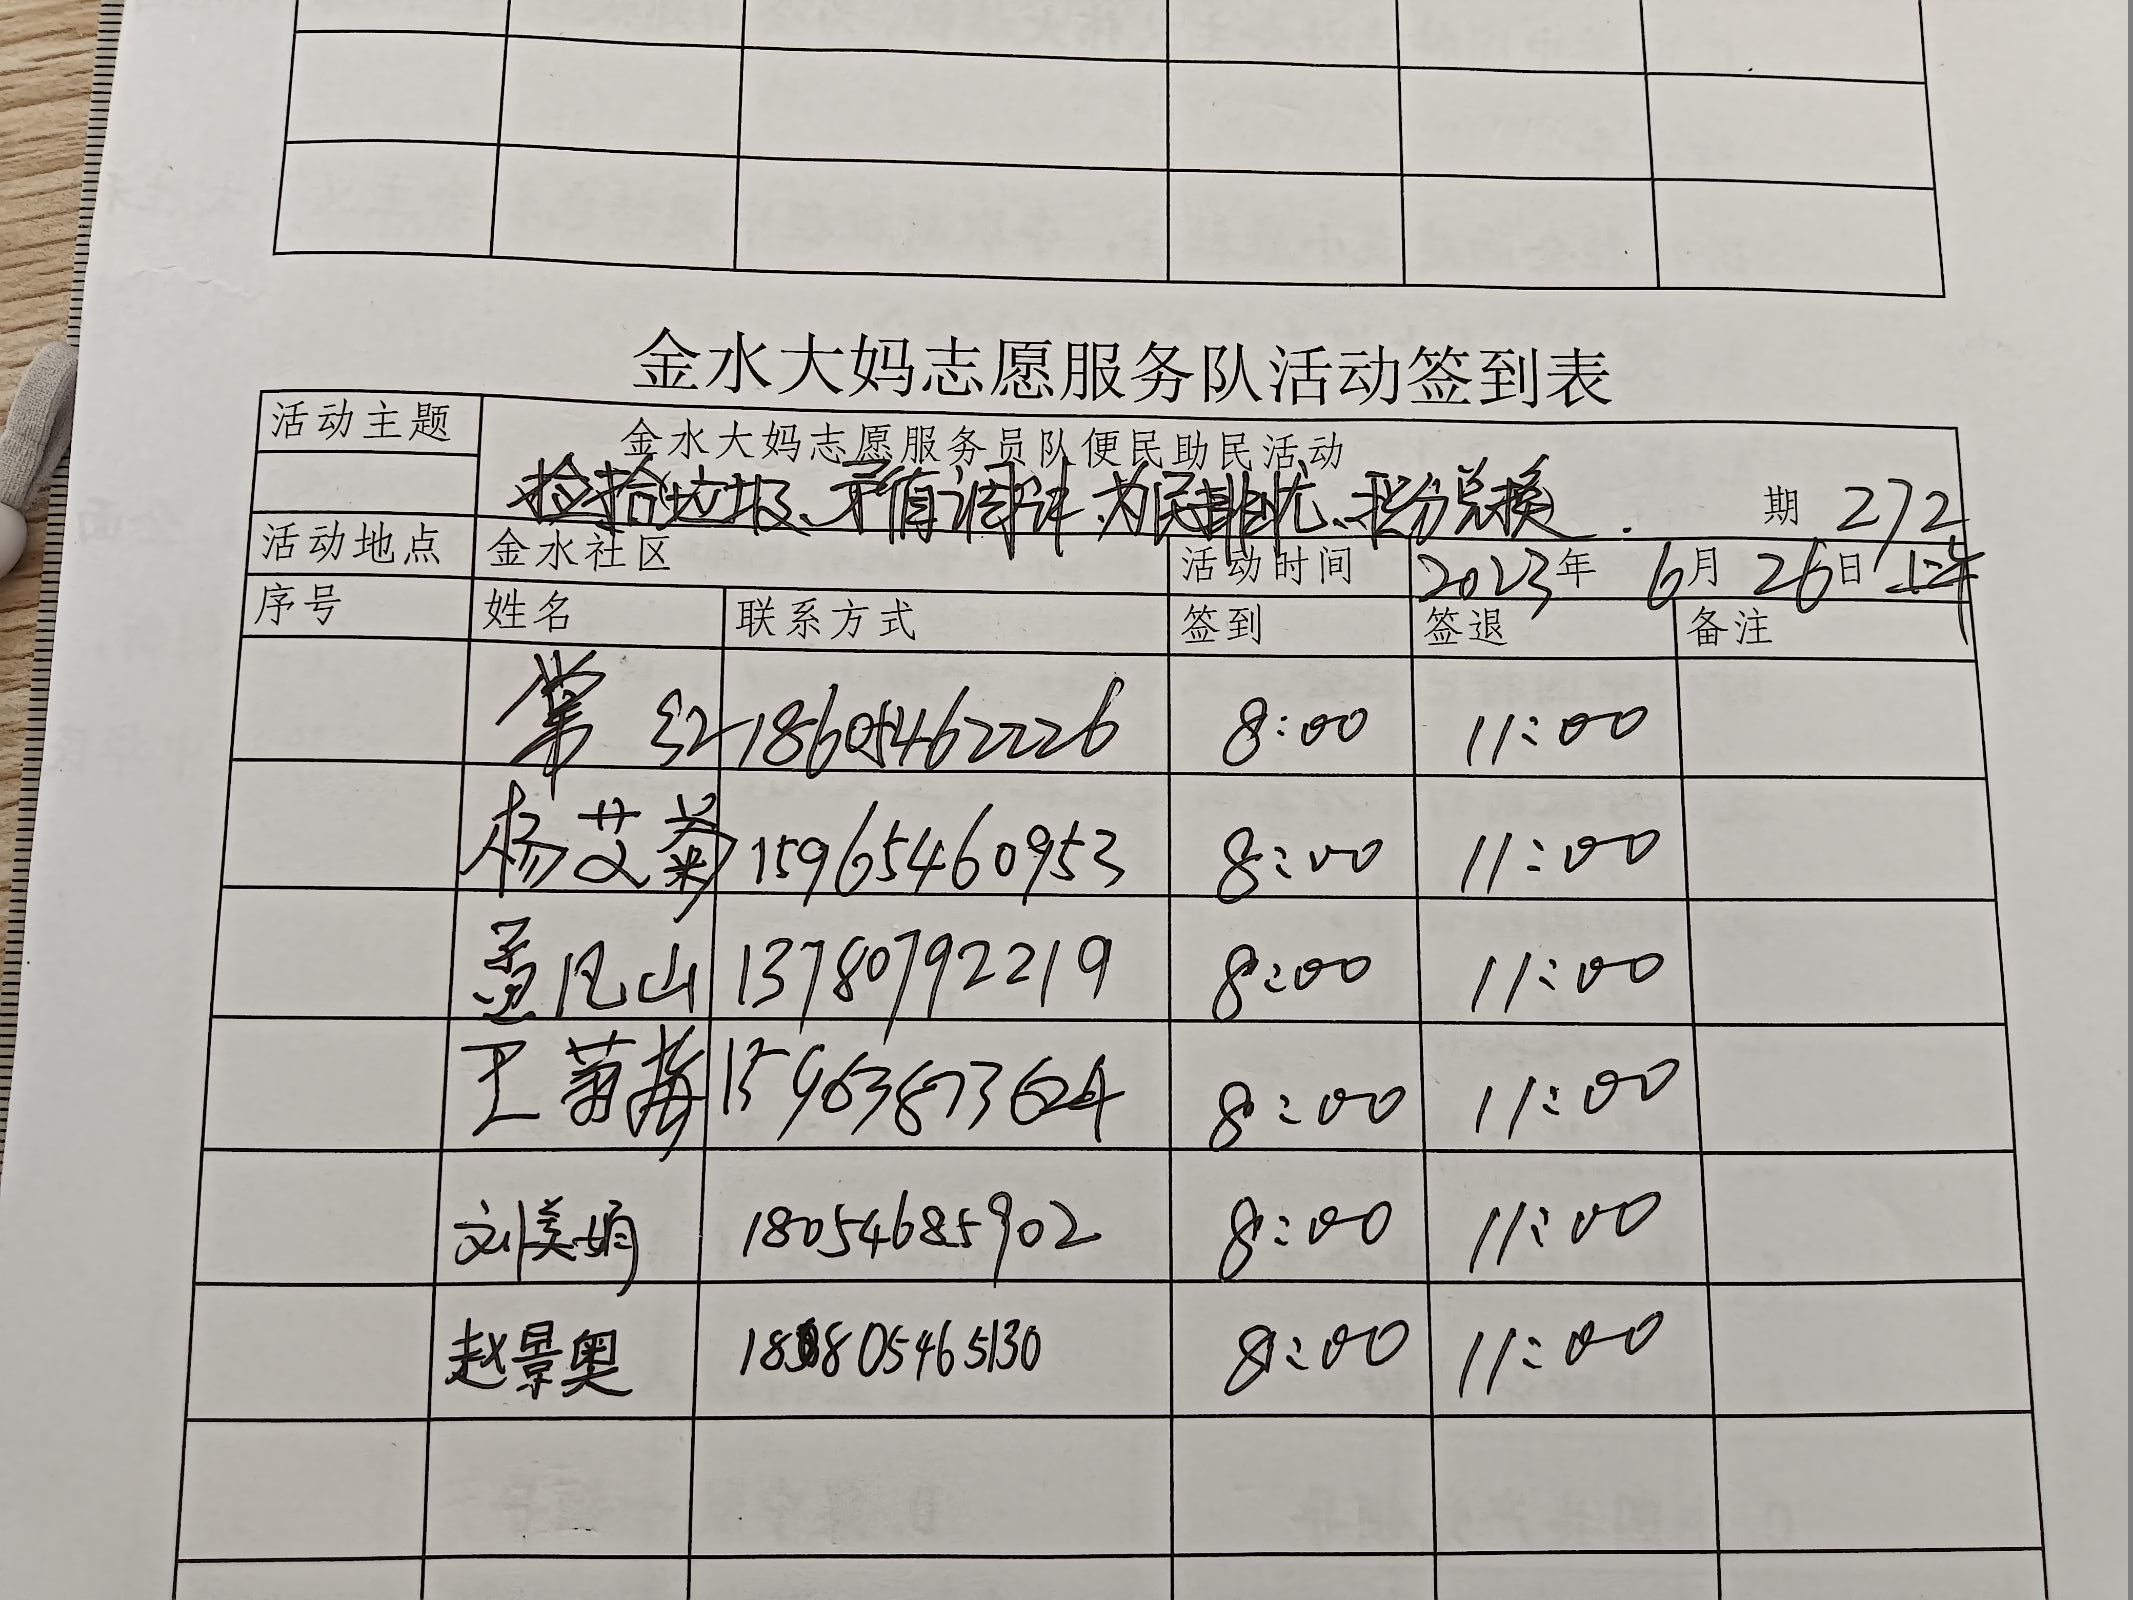 金水大妈志愿服务队活动签到表
活动主题 金水大妈志愿服务员队便民助民活动
捡拾垃圾、矛盾调解、为民排忧、积分兑换. 期 272
活动地点 金水社区 活动时间 2023年 6月 26日 上午
序号 姓名 联系方式 签到 签退 备注
常红 18605462226 8:00 11:00
杨艾菊 15965460953 8:00 11:00
孟凡山 13780792219 8:00 11:00
王菊梅 15963873624 8:00 11:00
刘美娟 18054685902 8:00 11:00
赵景奥 18805465130 8:00 11:00